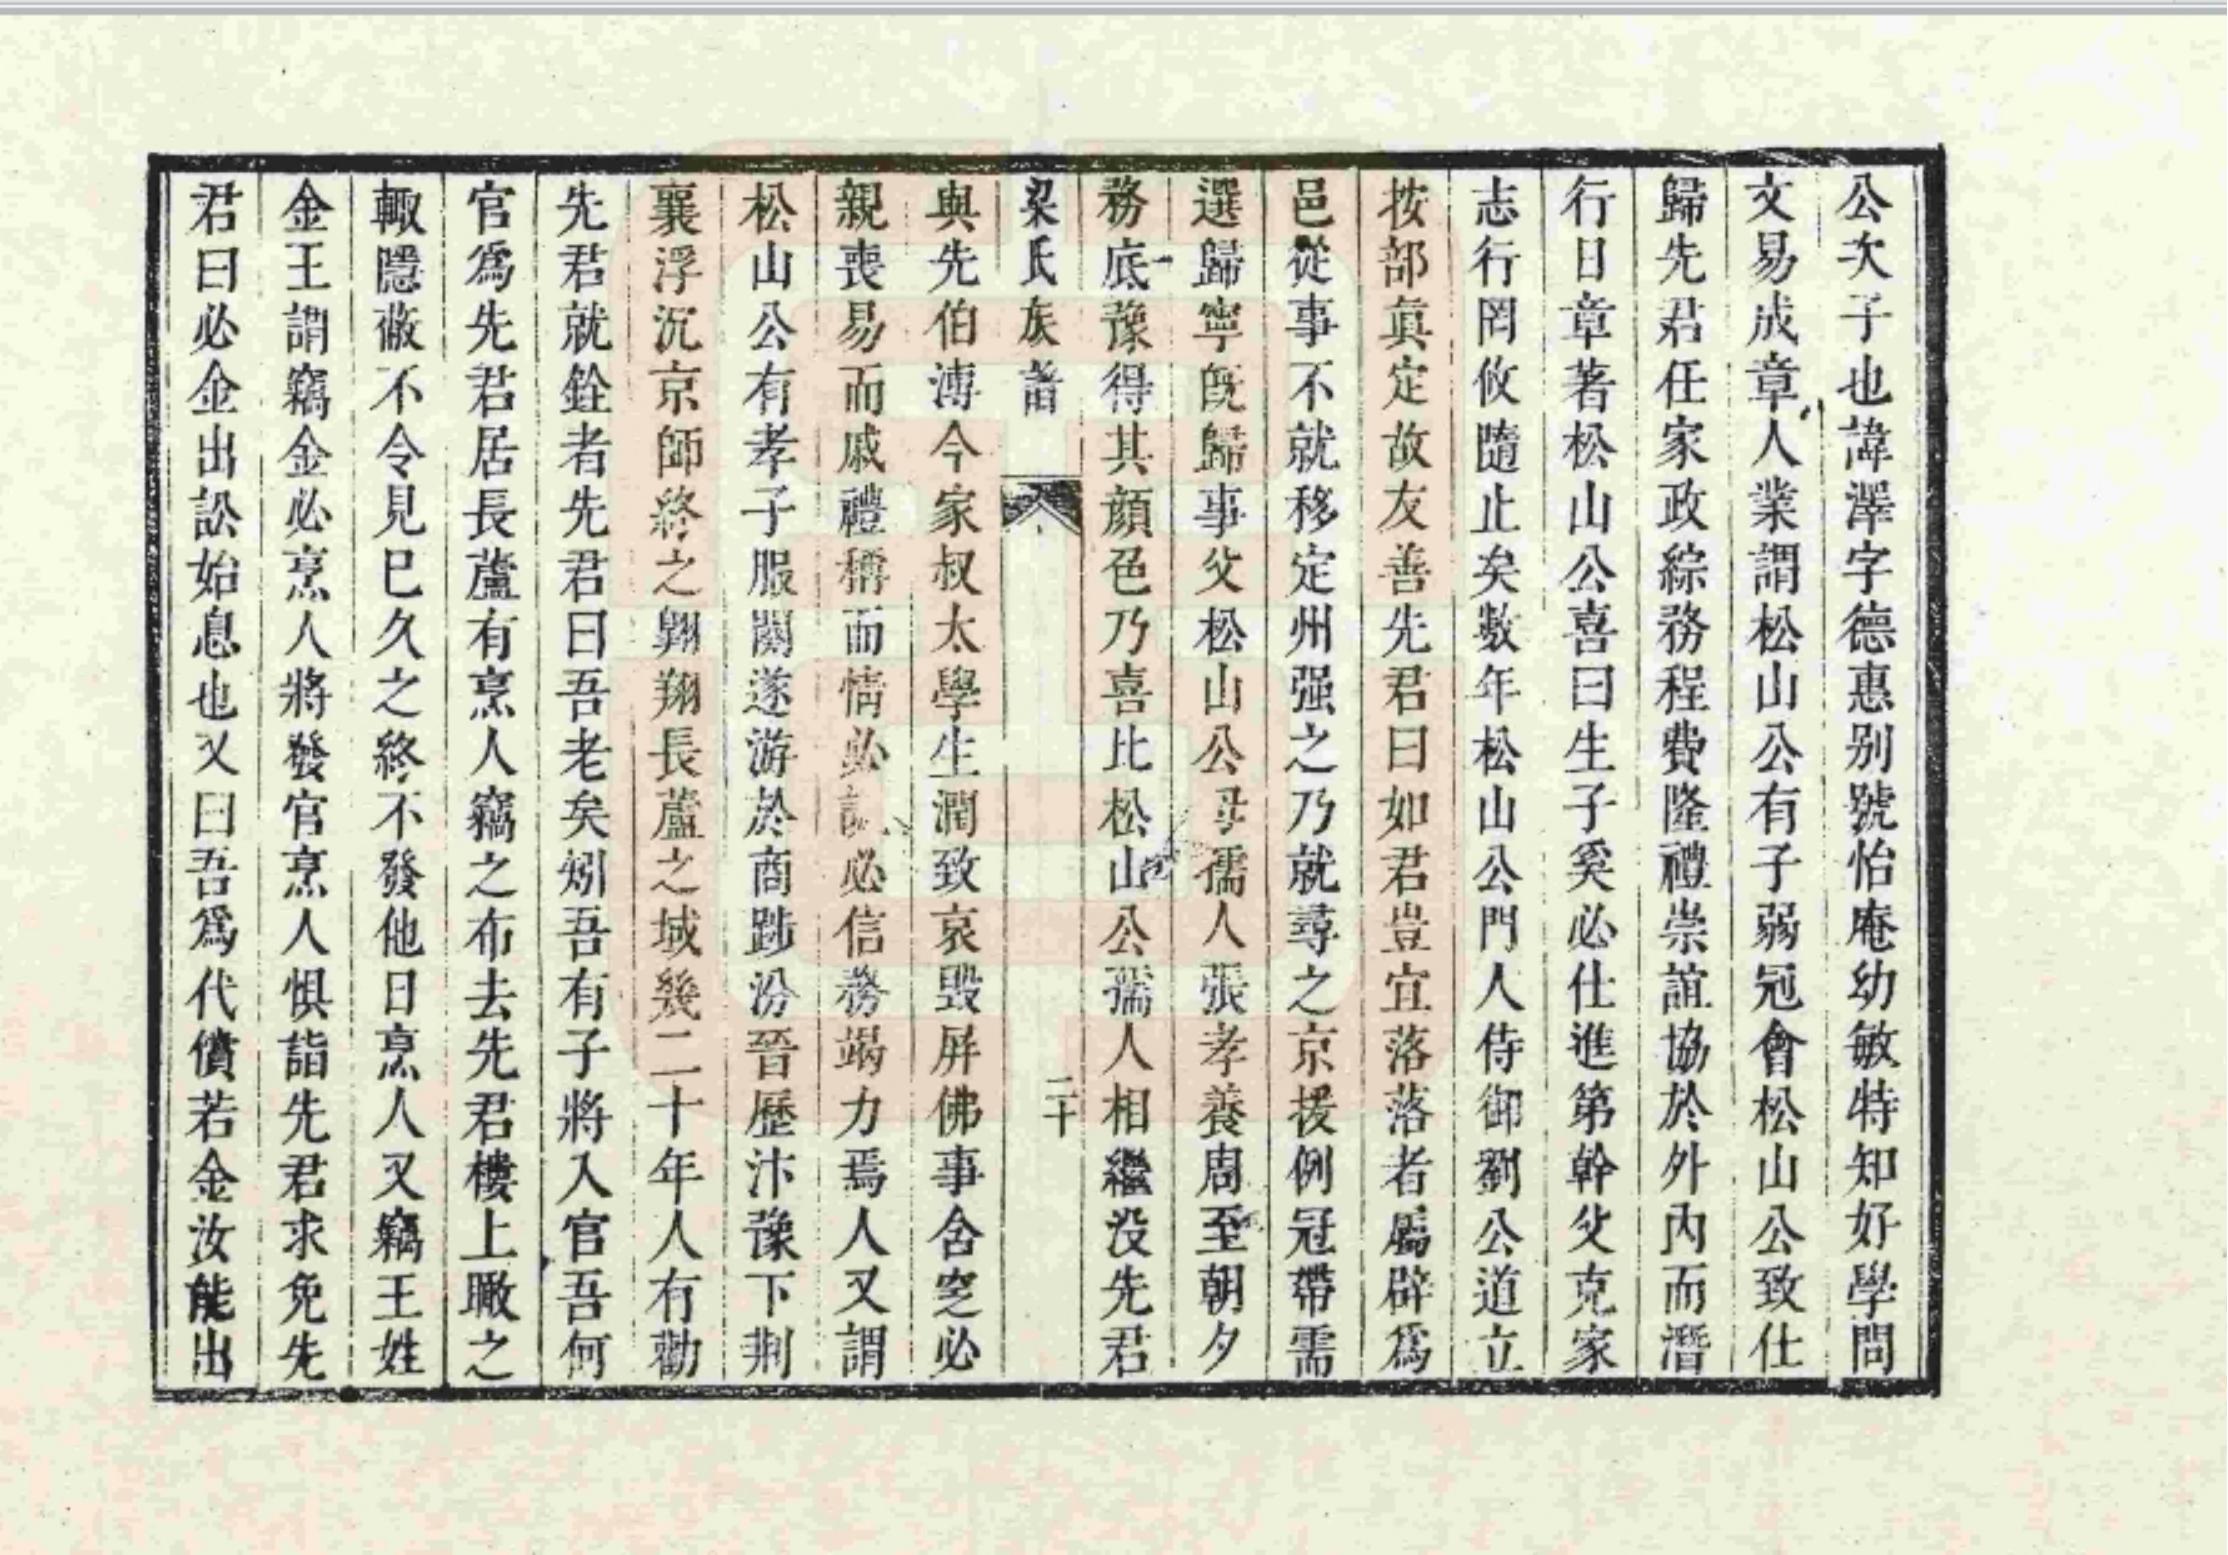 公次子也諱澤字德惠别號怡庵幼敏特知好學問
文易成章人業謂松山公有子弱冠會松山公致仕
歸先君任家政綜務程費隆禮崇誼協於外內而潛
行日章著松山公喜曰生子奚必仕進第幹父克家
志行罔攸隨止矣數年松山公門人侍御劉公道立
按部眞定故友善先君曰如君豈宜落落者屬辟爲
邑從事不就移定州强之乃就尋之京援例冠帶需
選歸寧旣歸事父松山公母孺人張孝養周至朝夕
務底豫得其顔色乃喜比松山公孺人相繼没先君
梁氏族譜
二十
與先伯溥今家叔太學生潤致哀毀屏佛事含窆必
親喪易而戚禮稱而情必誠必信務竭力焉人又謂
松山公有孝子服闋遂游於商跡汾晉歷汴豫下荆
襄浮沉京師終之翺翔長蘆之域幾二十年人有勸
先君就銓者先君曰吾老矣矧吾有子將入官吾何
官爲先君居長蘆有烹人竊之布去先君樓上瞰之
輙隱蔽不令見巳久之終不發他日烹人又竊王姓
金王謂竊金必烹人將發官烹人惧詣先君求免先
君曰必金出訟始息也又曰吾爲代償若金汝能出